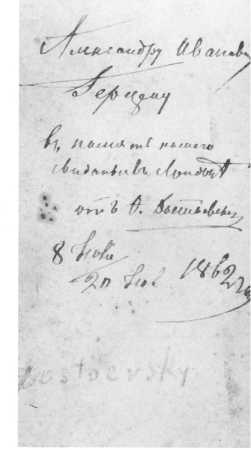 Александру Иванову
Герцену
въ память нашего
свиданья въ Лондонѣ
отъ Ѳ. Достоевскаго
8 Июля
20 Июл 1862
Dostoevsky